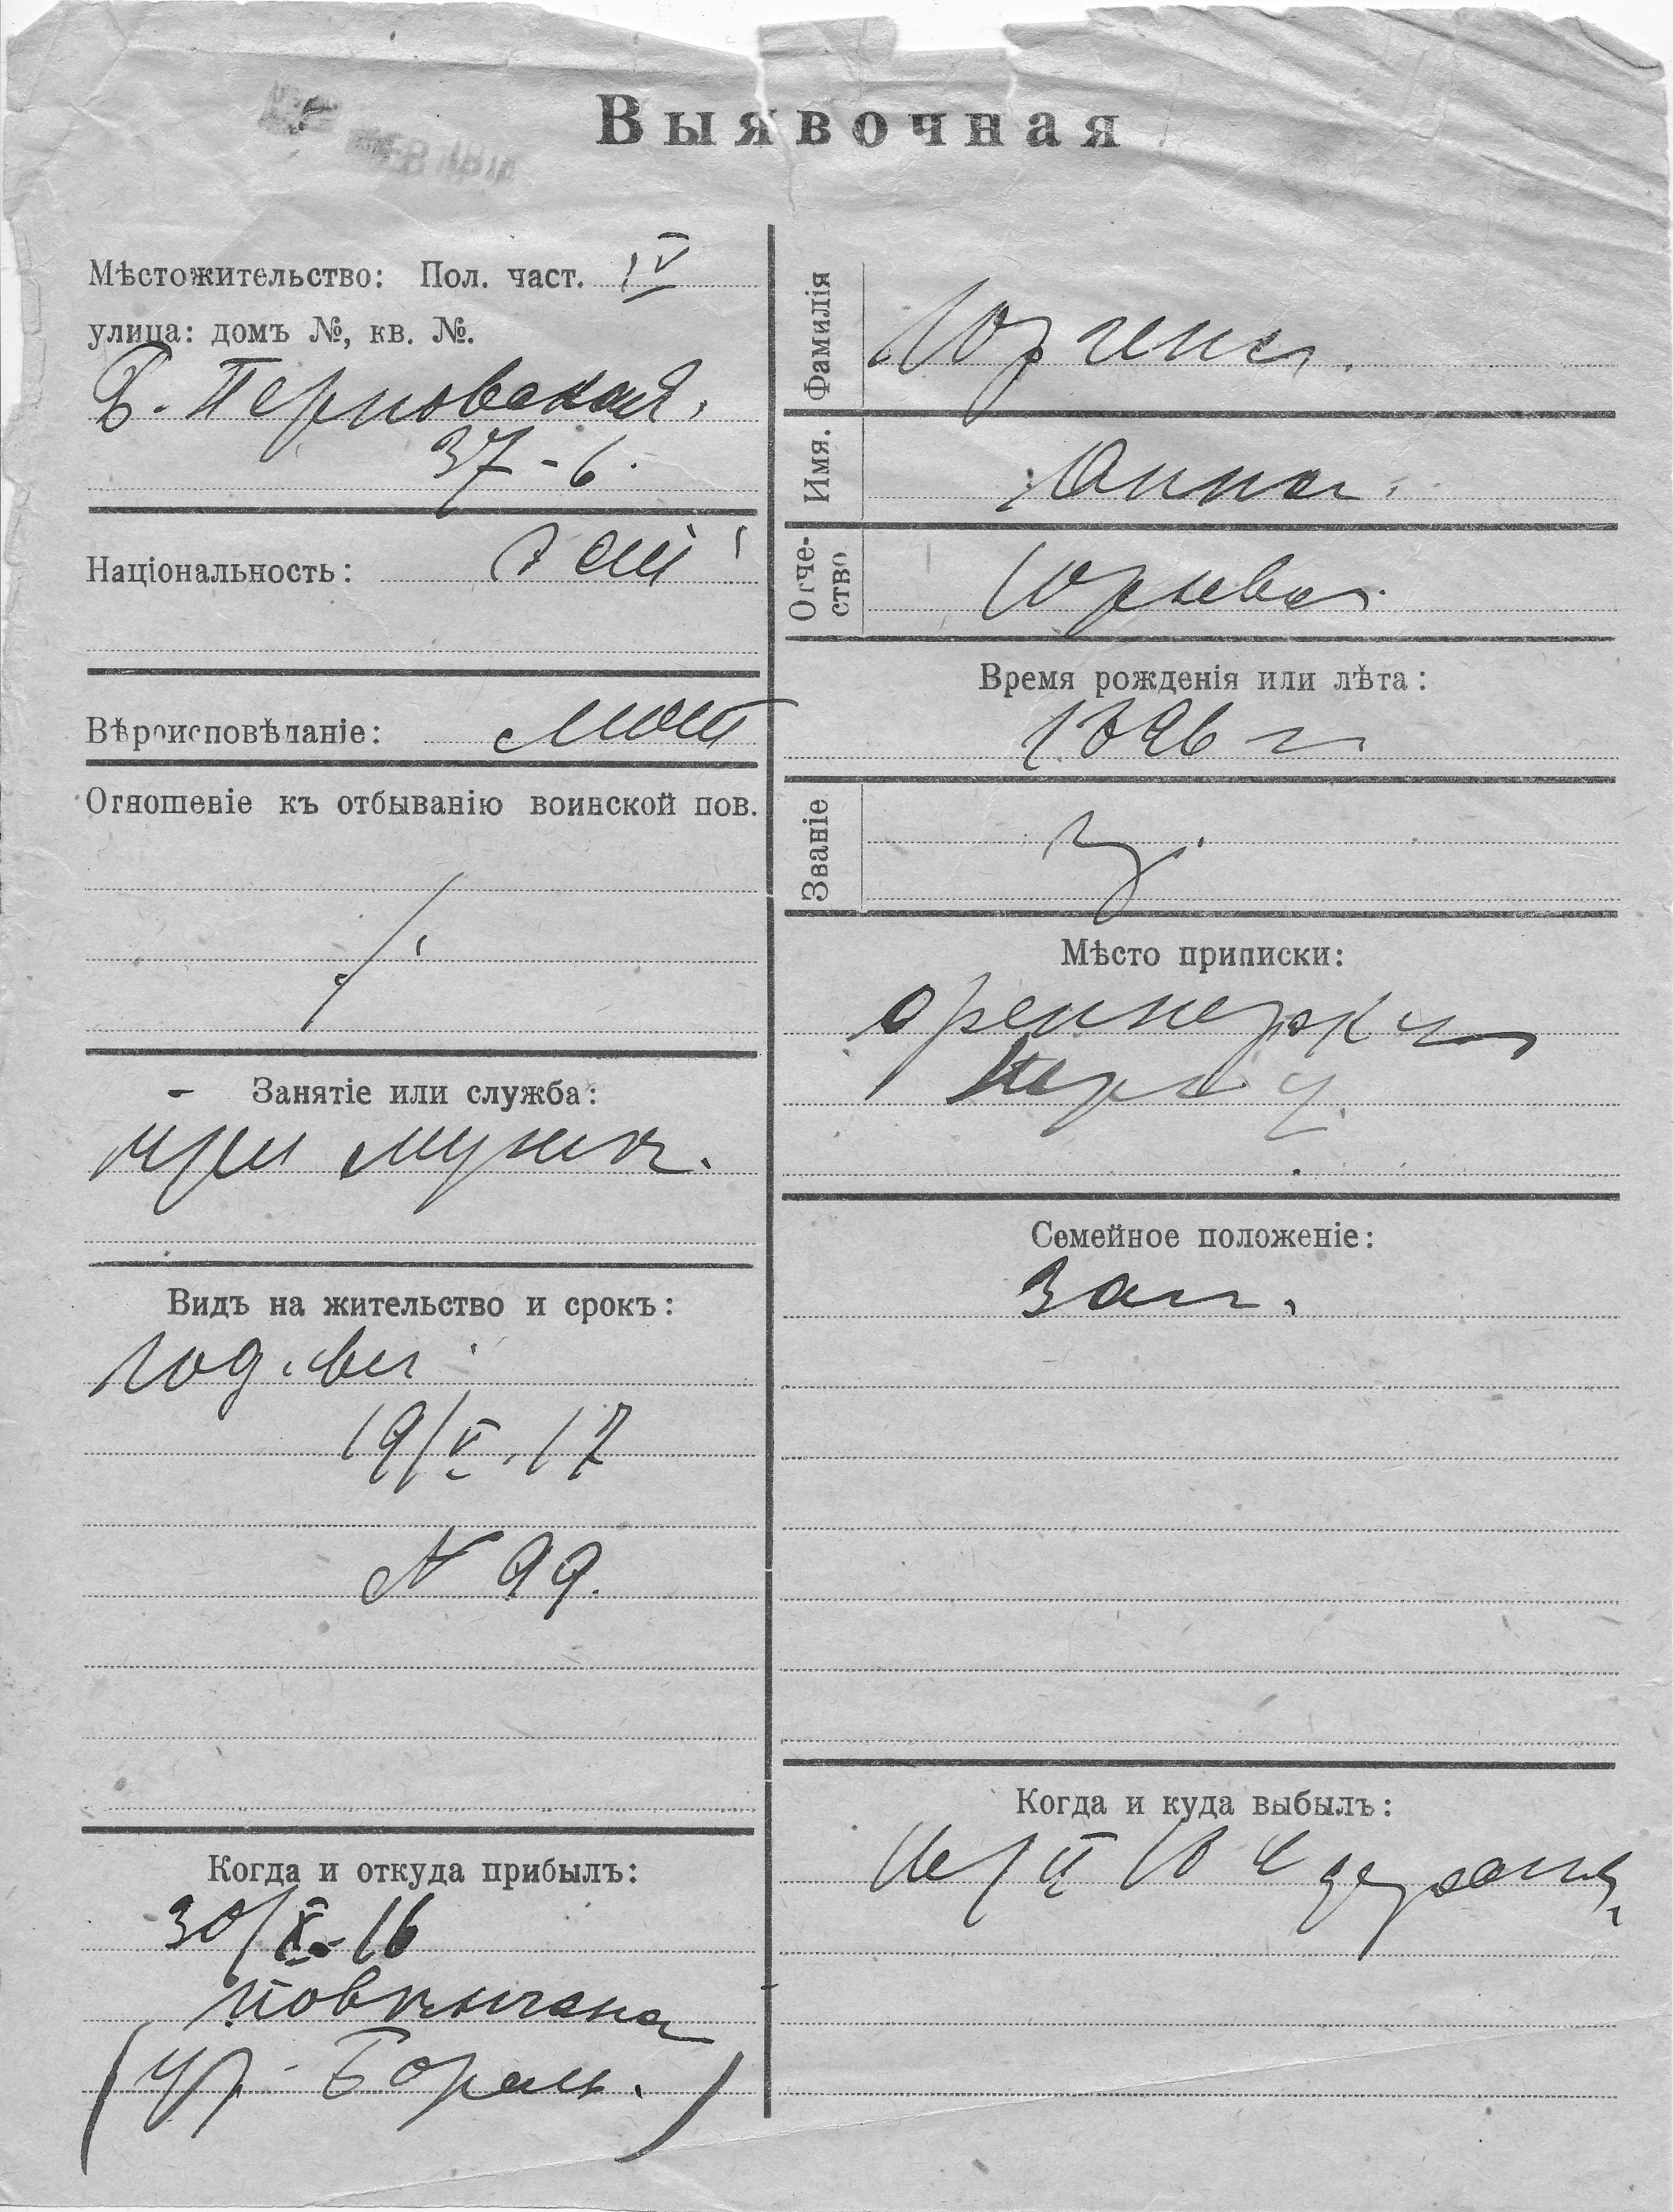 Выявочная
Мѣстожительство: Пол. част. IV
улица: домъ №, кв. №.
Б. Перновская,
37-6.
Національность:
Вѣроисповѣданіе: лют
Отношеніе къ отбыванію воинской пов.
Занятіе или служба:
при муже.
Видъ на жительство и срокъ:
год. св
19/V.17
N 99.
Когда и откуда прибылъ:
30/X-16
повенчана
(ур. Борам.)
Фамилія Юргенс.
Имя. Анна.
Отчество Юрьева
Время рожденія или лѣта:
1896 г
Званіе
Мѣсто приписки:
Семейное положеніе:
Зам.
Когда и куда выбылъ: